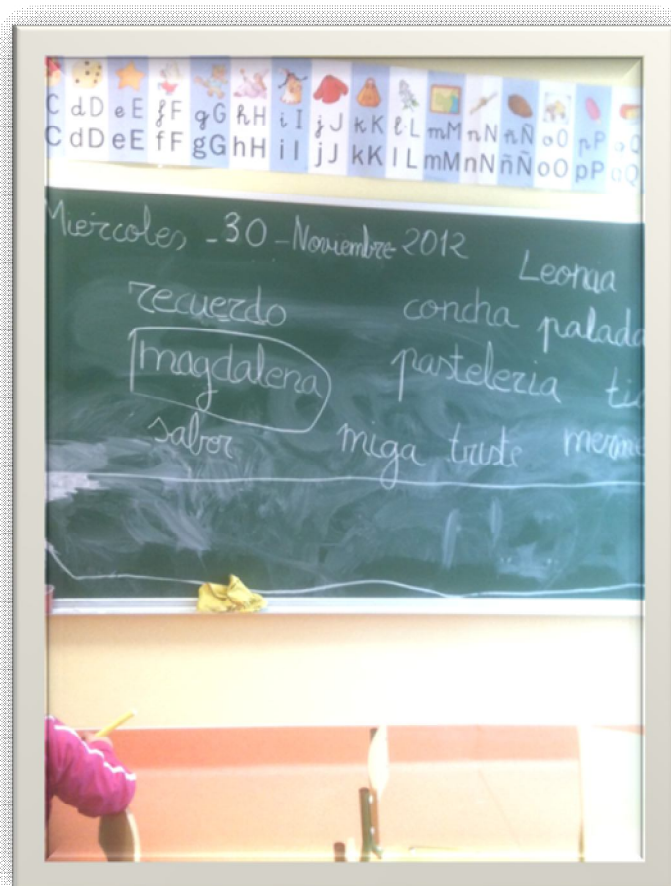 C dD eE fF gG hH iI jJ kK lL mM nN ñÑ oO pP qQ
C dD eE fF gG hH iI jJ kK lL mM nN ñÑ oO pP qQ
Miércoles - 30 - Noviembre 2012
recuerdo concha palada
magdalena pasteleria
sabor miga triste